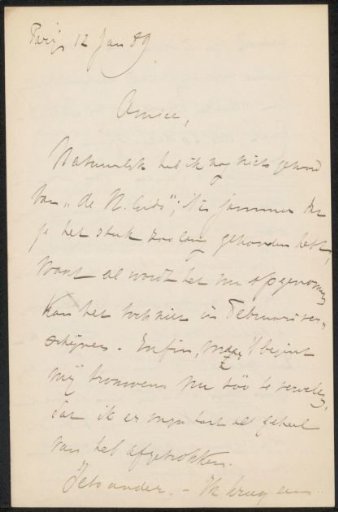 Parijs 12 Jan 89.
Amice,
Natuurlijk heb ik nog niets gehoord
van "de N. Gids"; 't is jammer dat
je het stuk zoo lang gehouden hebt,
want al wordt het nu opgenomen
kan het toch niet in Februari ver-
schijnen. Enfin, 't begint
mij trouwens nu zóo te vervelen,
dat ik er mijn hart al geheel
van heb afgetrokken.
Iets anders. - Ik kreeg een